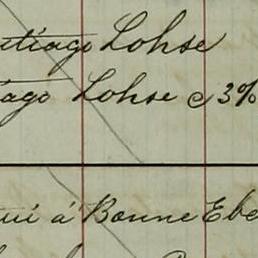 tiago Lohse
iago Lohse c 3%
ui á Bonne Ebe